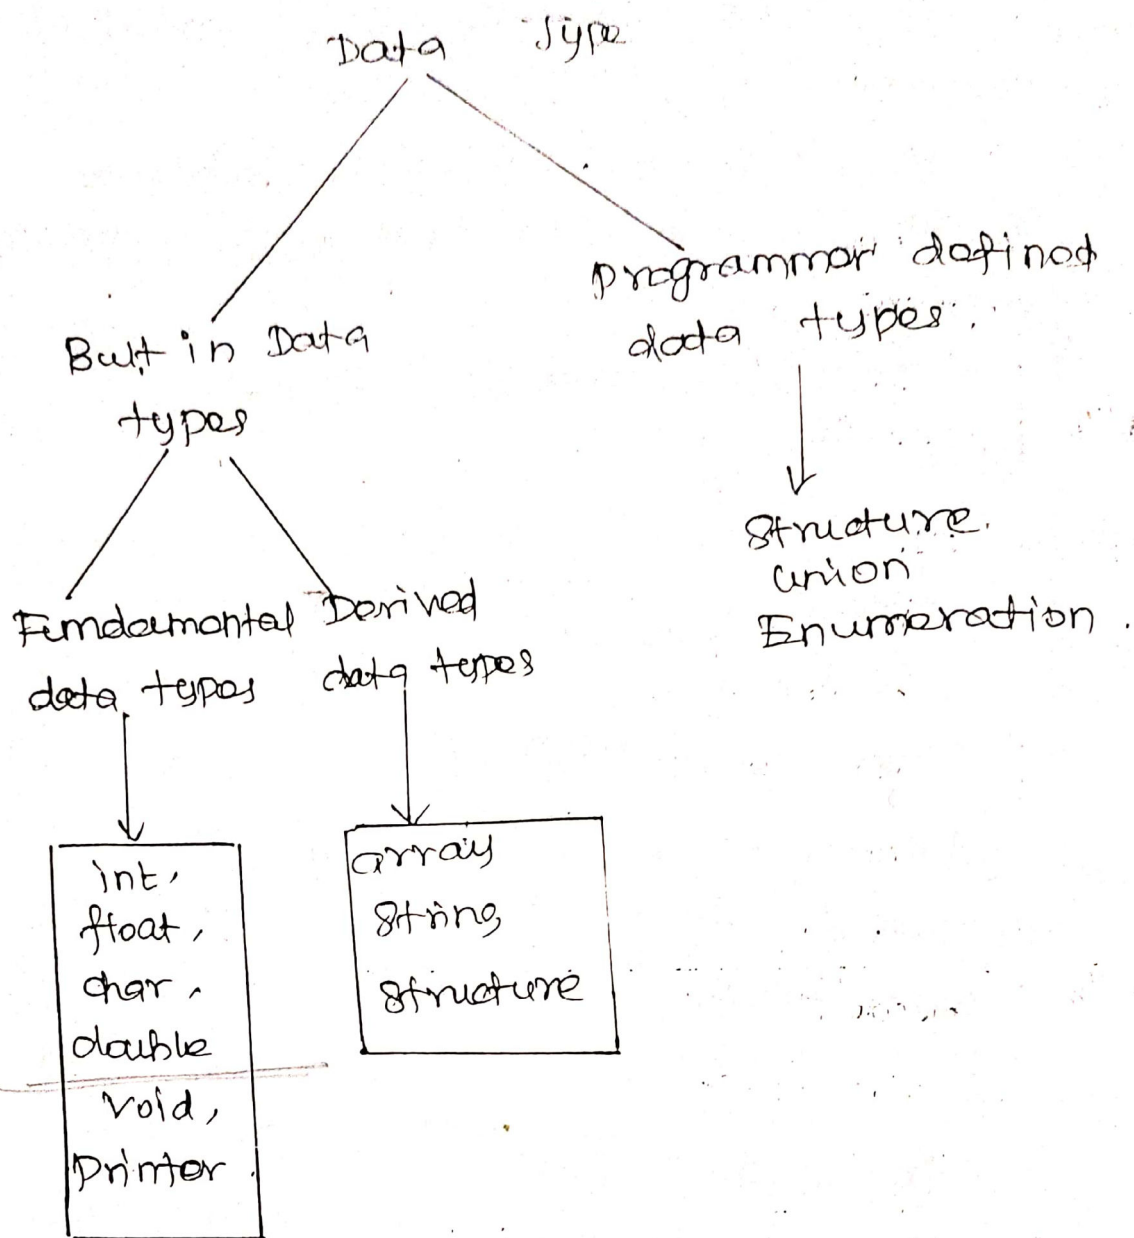 Data Type
Programmer defined
data types.
Built in Data
types
Structure.
union
Enumeration.
Fundamental
data types
Derived
data types
int,
float,
char,
double
void,
Printer
array
String
Structure